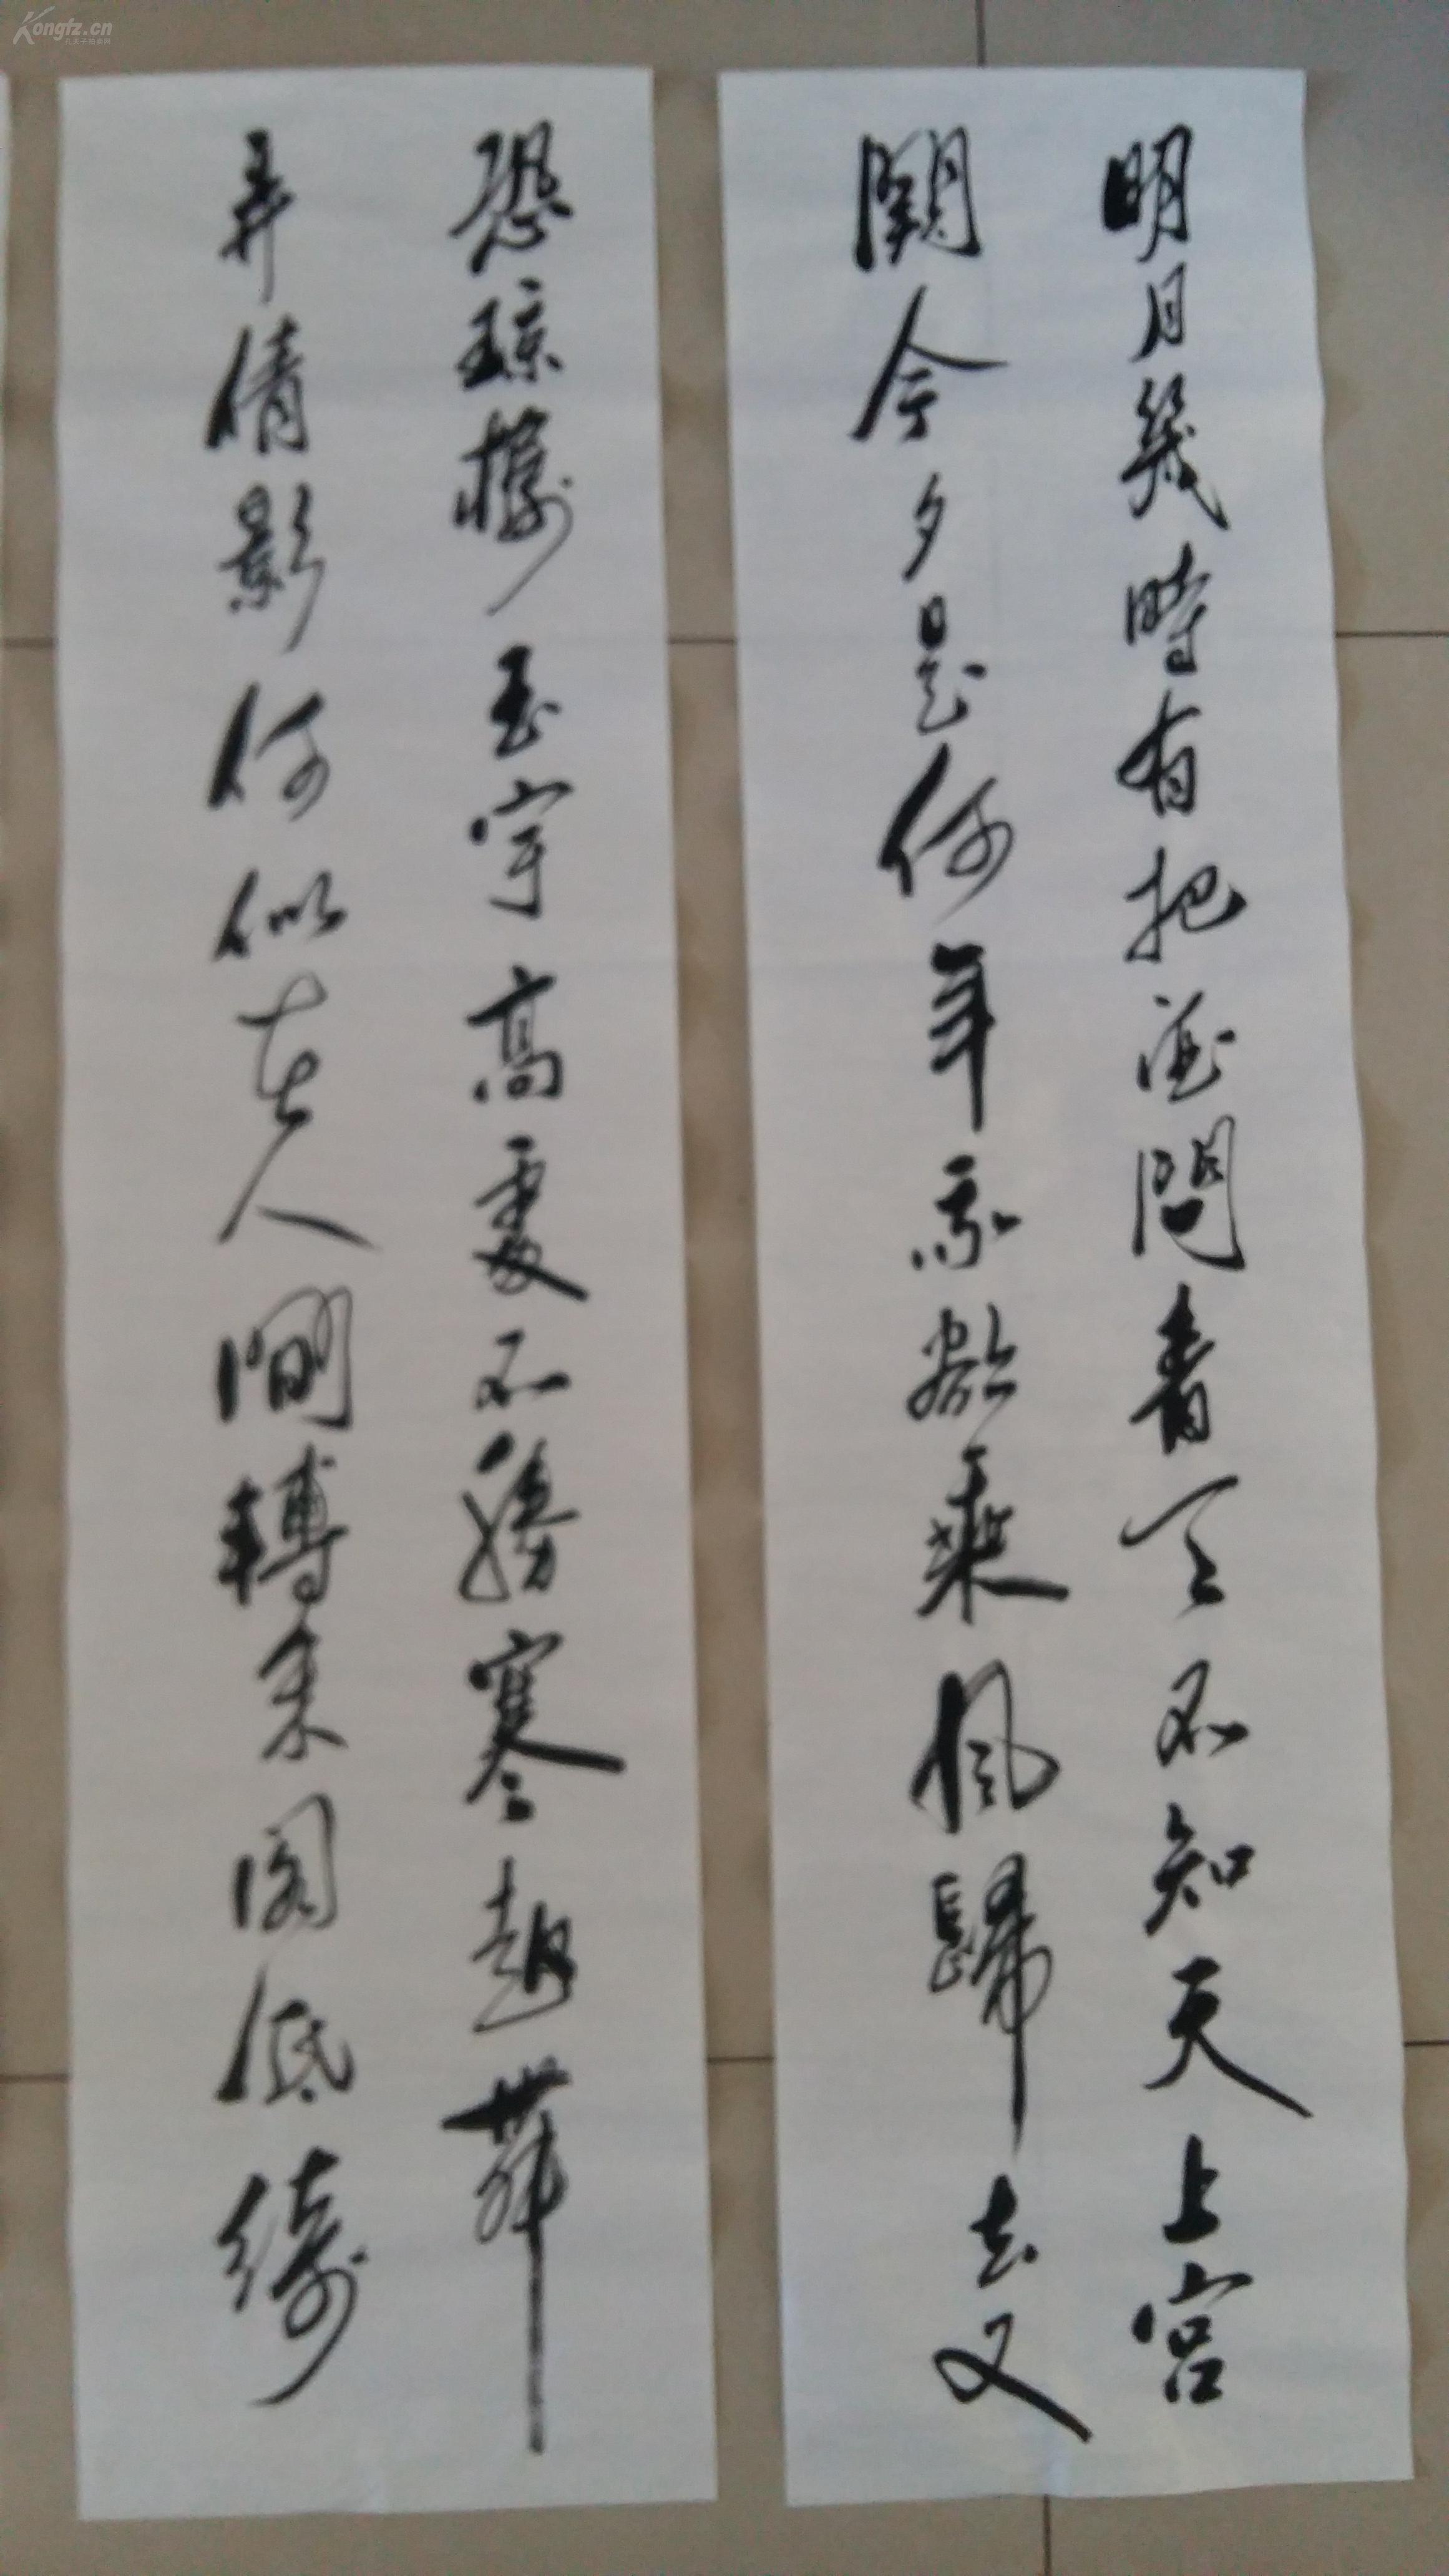 明月幾時有把酒問青天不知天上宮
闕今夕是何年我欲乘風歸去又
恐琼樓玉宇高處不勝寒起舞
弄清影何似在人間轉朱閣低綺
Kongfz.cn